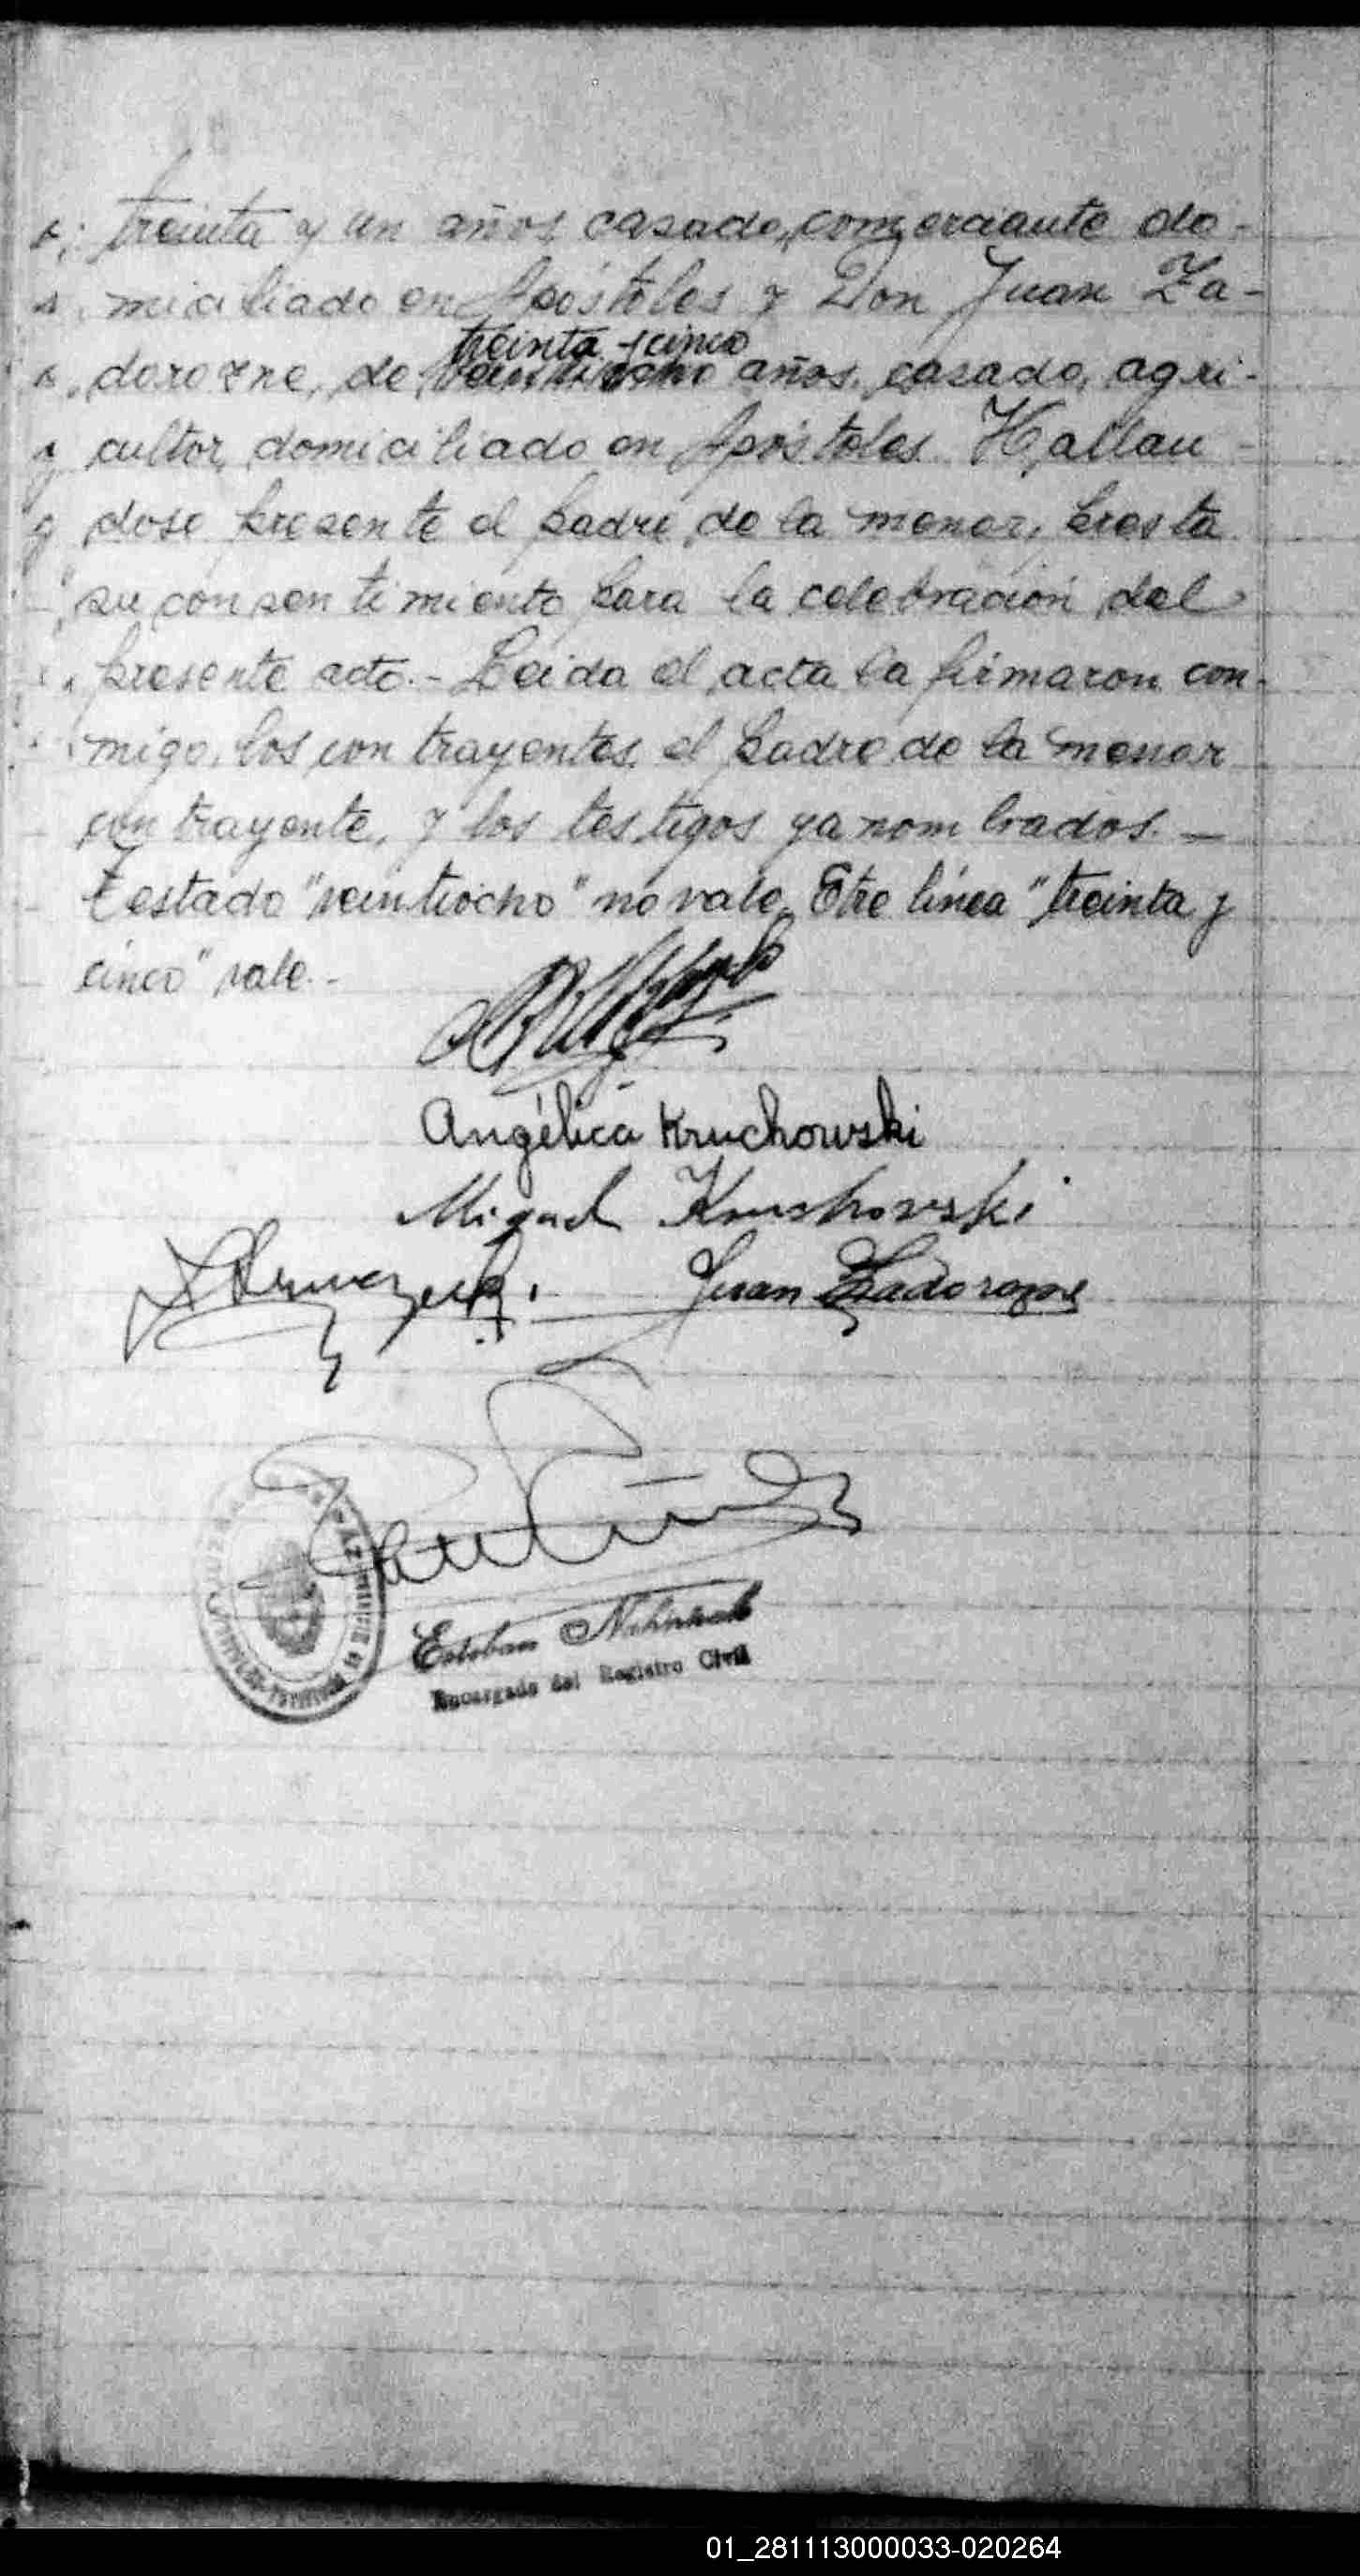 treinta y un años, casado, comerciante do-
miciliado en Apóstoles y Don Juan Za-
treinta y cinco
dorozne, de veintiocho años, casado, agri-
cultor, domiciliado en Apóstoles. Hallan-
dose presente el padre de la menor, presta
su consentimiento para la celebración del
presente acto.- Leida el acta la firmaron con-
migo, los contrayentes, el padre de la menor
contrayente, y los testigos ya nombrados.—
Testado "veintiocho" no vale. Etre línea "treinta y
cinco" vale.-
Angélica Kruchowski
Miguel Kruchowski
Juan Zadorozne
Esteban
Encargado del Registro Civil
01_281113000033-020264